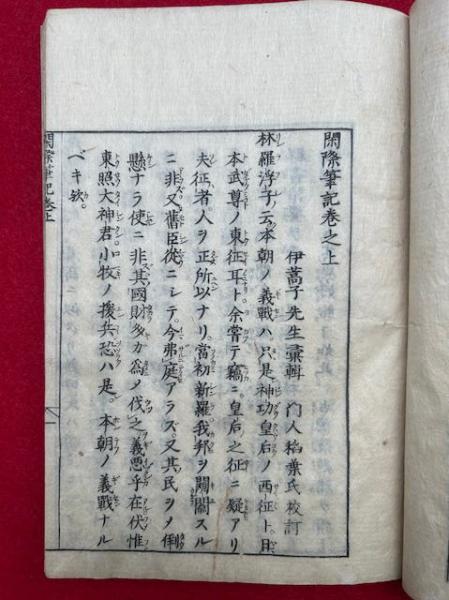 閑際筆記卷之上
伊蒿子先生彙輯 門人稻葉氏校訂
林羅浮子云本朝ノ義戰ハ。只是神功皇后ノ西征ト。日
本武尊ノ東征耳ト。余甞テ竊ニ。皇后之征ニ疑アリ
夫征者人ヲ正所以ナリ。當初新羅我邦ヲ闚スル
ニ非又舊臣從ニシテ。今弗庭アラズ。又其民ヲメ倒
懸ナラ使ニ非其國財多カ爲ノ伐之義惡乎在伏惟
東照大神君。小牧ノ援兵恐ハ是。本朝ノ義戰ナル
ベキ欤。
閑際筆記卷上